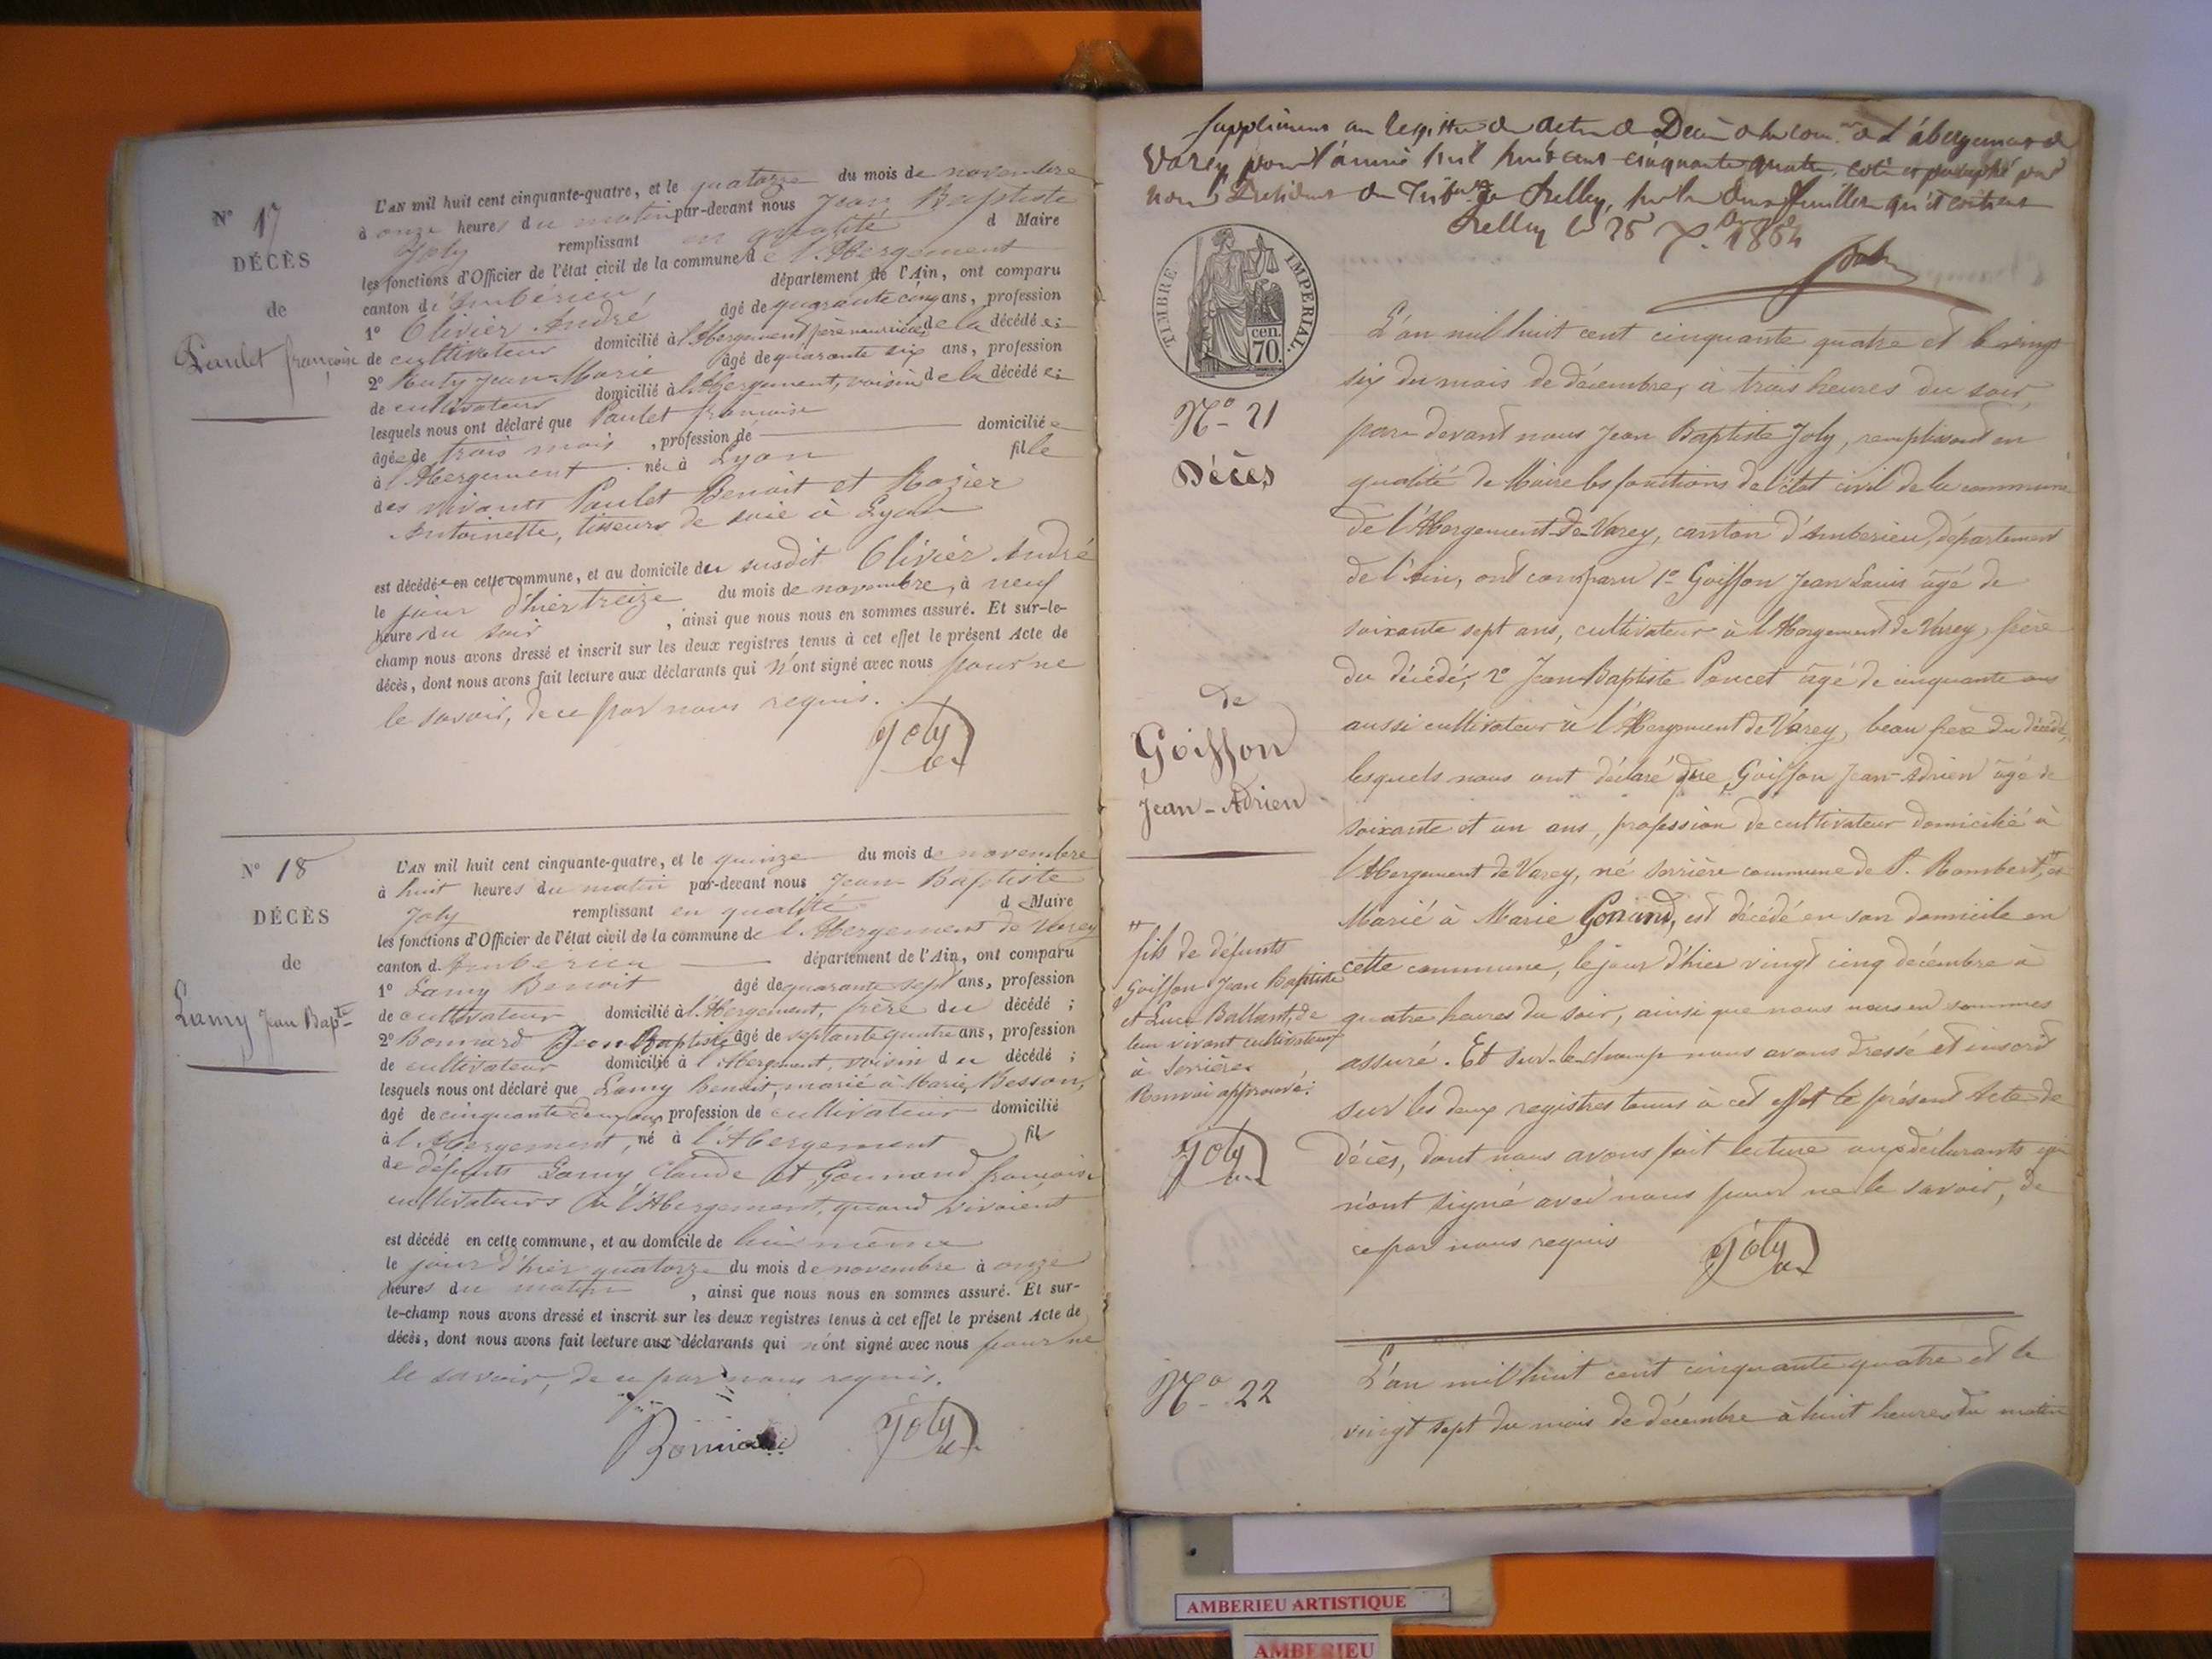 N° 17
DÉCÈS
de
Paulet françoise
L'AN mil huit cent cinquante-quatre, et le quatorze du mois de novembre
à onze heures du matin par-devant nous Jean Baptiste
Joly remplissant en qualité d Maire
les fonctions d'Officier de l'état civil de la commune de l'Abergement
canton d'Ambérieu, département de l'Ain, ont comparu
1° Olivier André âgé de quarante cinq ans, profession
de cultivateur domicilié à l'Abergement, père nourricier de la décédée;
2° Ruty Jean-Marie âgé de quarante six ans, profession
de cultivateur domicilié à l'Abergement, voisin de la décédée;
lesquels nous ont déclaré que Paulet françoise
âgée de trois mois, profession de domiciliée
à l'Abergement née à Lyon fille
des vivants Paulet Benoit et Rozier
Antoinette, tisseurs de soie à Lyon
est décédée en cette commune, et au domicile du susdit Olivier André
le jour d'hier treize du mois de novembre, à neuf
heure du soir, ainsi que nous nous en sommes assuré. Et sur-le-
champ nous avons dressé et inscrit sur les deux registres tenus à cet effet le présent Acte de
décès, dont nous avons fait lecture aux déclarants qui n'ont signé avec nous pour ne
le savoir, de ce par nous requis.
Joly
N° 18
DÉCÈS
de
Lamy Jean Bapte
L'AN mil huit cent cinquante-quatre, et le quinze du mois de novembre
à huit heures du matin par-devant nous Jean Baptiste
Joly remplissant en qualité d Maire
les fonctions d'Officier de l'état civil de la commune de l'Abergement de Varey
canton d'Amberieu département de l'Ain, ont comparu
1° Lamy Benoit âgé de quarante sept ans, profession
de cultivateur domicilié à l'Abergement, frère du décédé;
2° Bonnard Jean Baptiste âgé de septante quatre ans, profession
de cultivateur domicilié à l'Abergement, voisin du décédé;
lesquels nous ont déclaré que Lamy Benoit, marié à Marie Besson,
âgé de cinquante deux ans profession de cultivateur domicilié
à l'Abergement, né à l'Abergement fils
de défunts Lamy Claude et Gonnand françoise
cultivateurs à l'Abergement, quand vivoient
est décédé en cette commune, et au domicile de lui même
le jour d'hier quatorze du mois de novembre à onze
heures du matin, ainsi que nous nous en sommes assuré. Et sur-
le-champ nous avons dressé et inscrit sur les deux registres tenus à cet effet le présent Acte de
décès, dont nous avons fait lecture aux déclarants qui n'ont signé avec nous pour ne
le savoir, de ce par nous requis.
Bonnard Joly
Supplément au Registre des actes de Décès de la comne de l'abergement de
Varey, pour l'année mil huit cent cinquante quatre, coté et paraphé par
nous Président du Tribal de Belley, sur les deux feuilles qu'il contient
Belley le 26 Xbre 1854
TIMBRE IMPÉRIAL.
cen. 70.
N° 21
Décès
de
Goiffon
Jean-Adrien
L'an mil huit cent cinquante quatre et le vingt
six du mois de décembre, à trois heures du soir,
par devant nous Jean Baptiste Joly, remplissant en
qualité de Maire les fonctions de l'état civil de la commune
de l'Abergement-de-Varey, canton d'Amberieu, département
de l'Ain, ont comparu 1° Goiffon Jean Louis âgé de
soixante sept ans, cultivateur à l'Abergement de Varey, frère
du décédé, 2° Jean-Baptiste Poncet âgé de cinquante ans
aussi cultivateur à l'Abergement de Varey, beau frère du décédé,
lesquels nous ont déclaré que Goiffon Jean-Adrien âgé de
soixante et un ans, profession de cultivateur domicilié à
l'Abergement de Varey, né Sorrière commune de St. Rambert, et
Marié à Marie Gonand, est décédé en son domicile en
cette commune, le jour d'hier vingt cinq décembre à
quatre heures du soir, ainsi que nous nous en sommes
assuré. Et sur-le-champ nous avons dressé et inscrit
sur les deux registres tenus à cet effet le présent Acte de
décès, dont nous avons fait lecture aux déclarants qui
n'ont signé avec nous pour ne le savoir, de
ce par nous requis
Joly
fils de défunts
Goiffon Jean Baptiste
et Luce Ballant, de
leur vivant cultivateurs
à Sorrière
Renvoi approuvé:
Joly
N° 22
L'an mil huit cent cinquante quatre et le
vingt sept du mois de décembre à huit heures du matin
AMBERIEU ARTISTIQUE
AMBERIEU